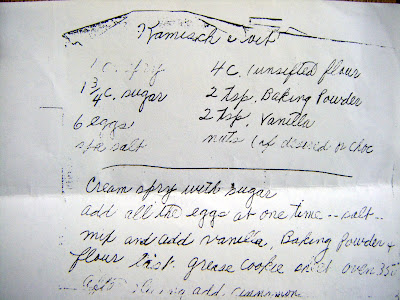 Kamisch Broit
1 c. spry 4 c. unsifted flour
1 3/4 c. sugar 2 tsp. Baking Powder
6 eggs 2 tsp. Vanilla
salt nuts if desired or choc
Cream spry with sugar
add all the eggs at one time -- salt --
mix and add vanilla, Baking Powder +
flour last. grease cookie sheet oven 350
add cinnamon